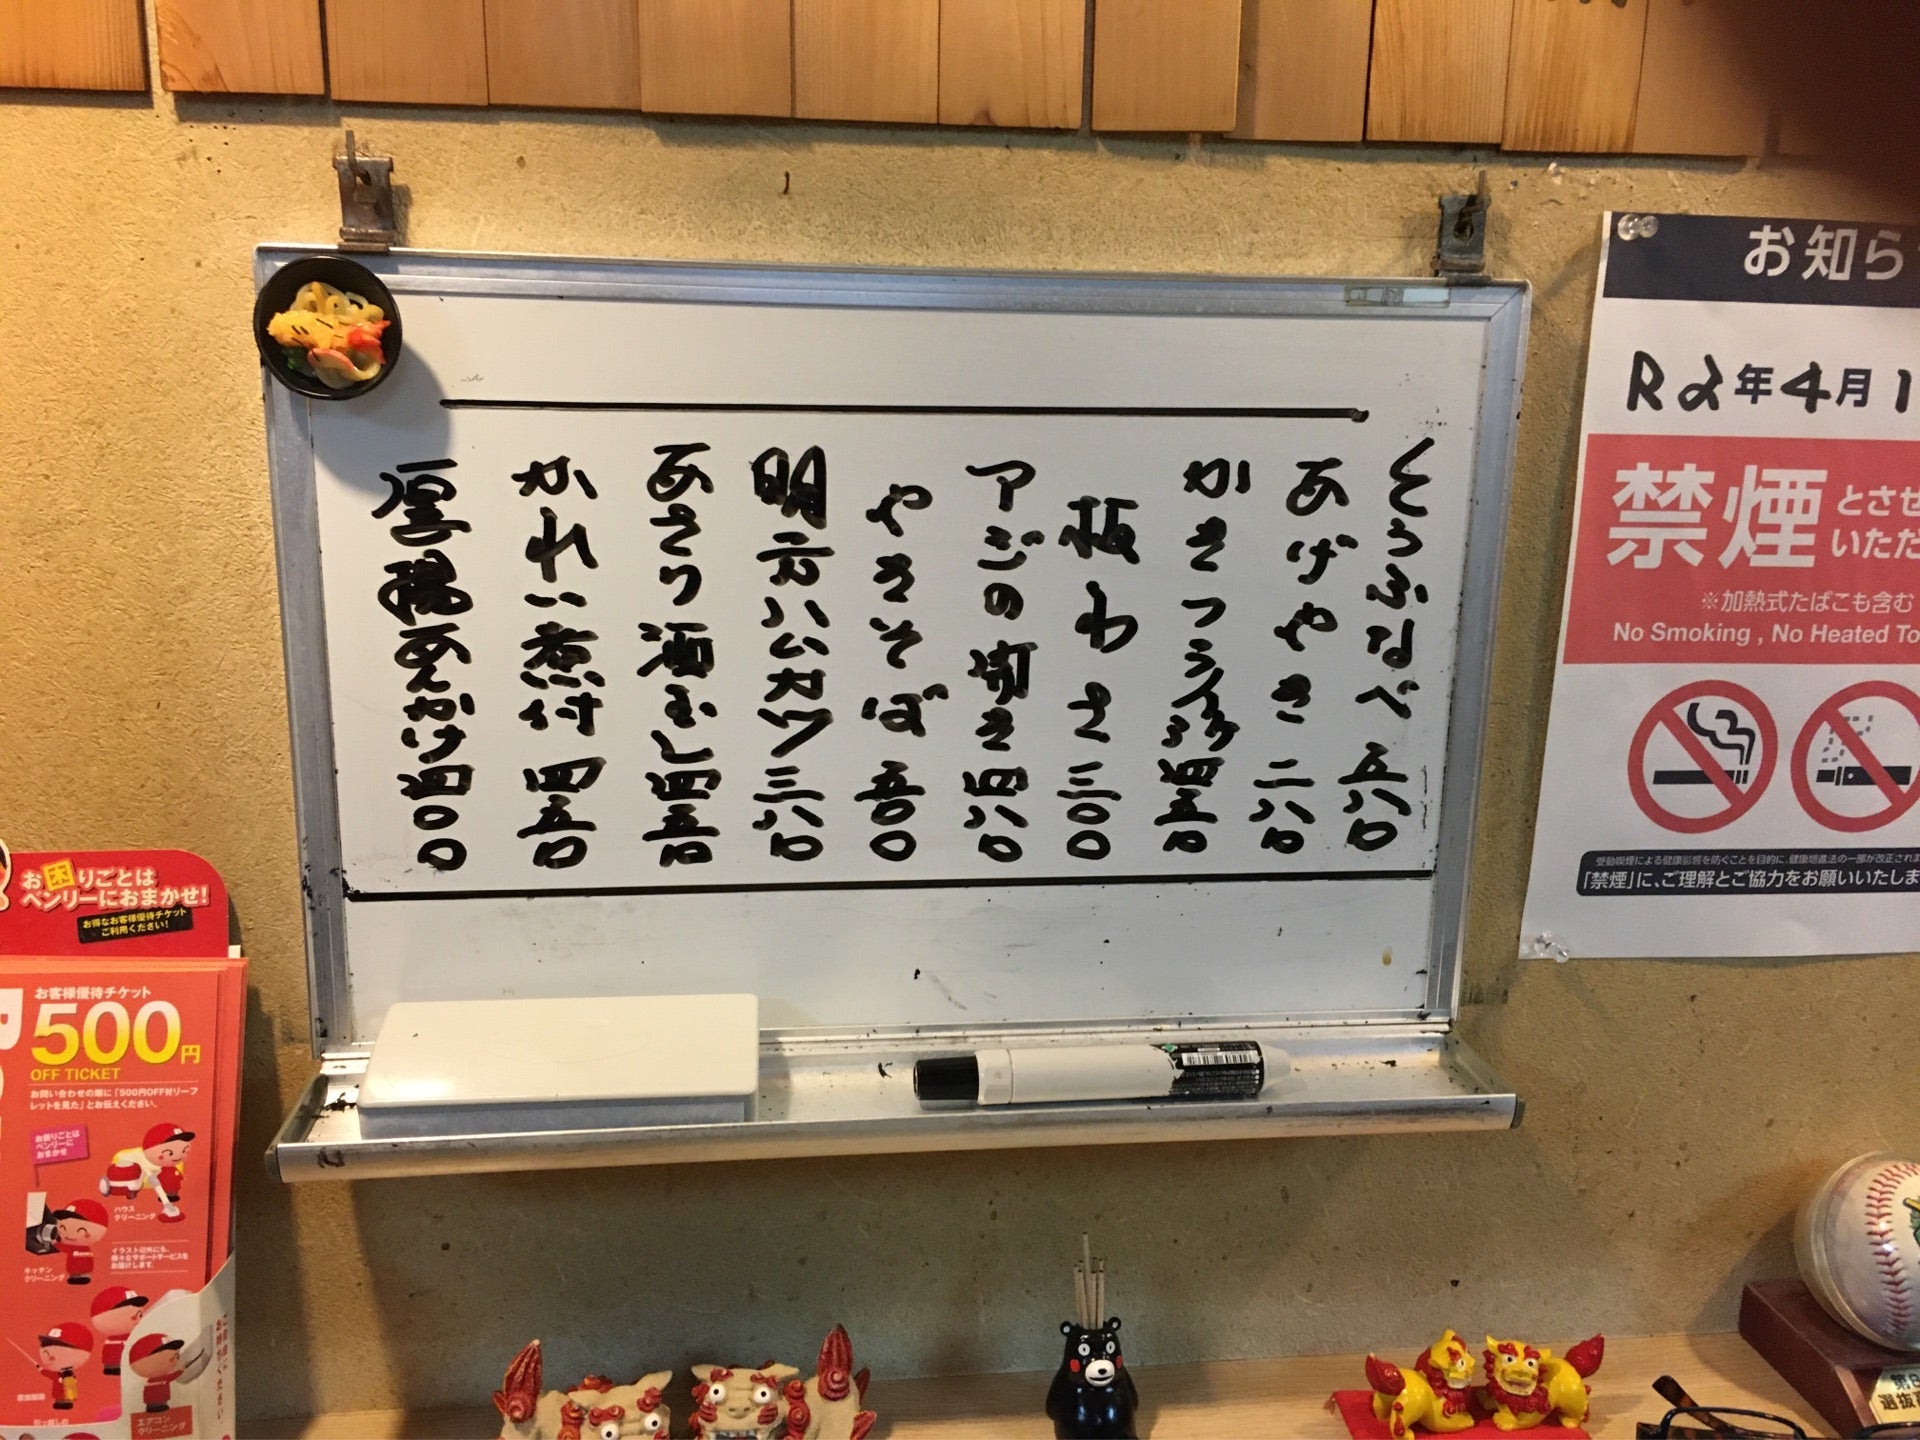 とうふなべ 五八〇
あげやき 二八〇
かきフライ 四五〇
板わさ 三〇〇
アジの開き 四八〇
やきそば 五〇〇
明方ハムカツ 三八〇
あさり酒むし 四五〇
かれい煮付 四五〇
厚揚あんかけ 四〇〇
お知ら
R2年4月1
禁煙
とさせ
いただ
※加熱式たばこも含む
No Smoking , No Heated To
受動喫煙による健康影響を防ぐことを目的に、健康増進法の一部が改正されま
「禁煙」に、ご理解とご協力をお願いいたしま
お困りごとは
ベンリーにおまかせ!
お得なお客様優待チケット
ご利用ください!
お客様優待チケット
500円
OFF TICKET
お問い合わせの際に「500円OFF付リーフ
レットを見た」とお伝えください。
お困りごとは
ベンリーに
おまかせ
ハウス
クリーニング
キッチン
クリーニング
イラスト以外にも、
様々なサポートサービスを
お届けします。
エアコン
クリーニング
選抜